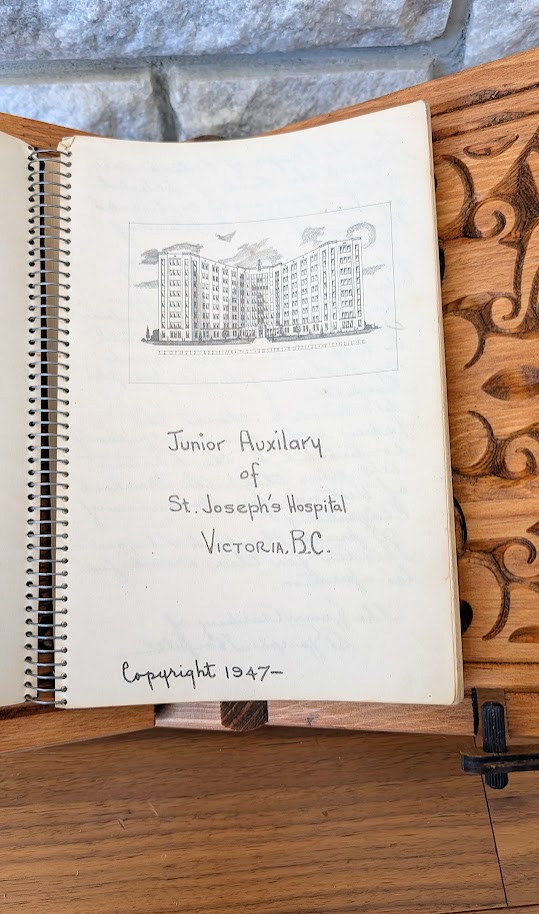 Junior Auxilary
of
St. Joseph's Hospital
VICTORIA, B.C.
Copyright 1947—